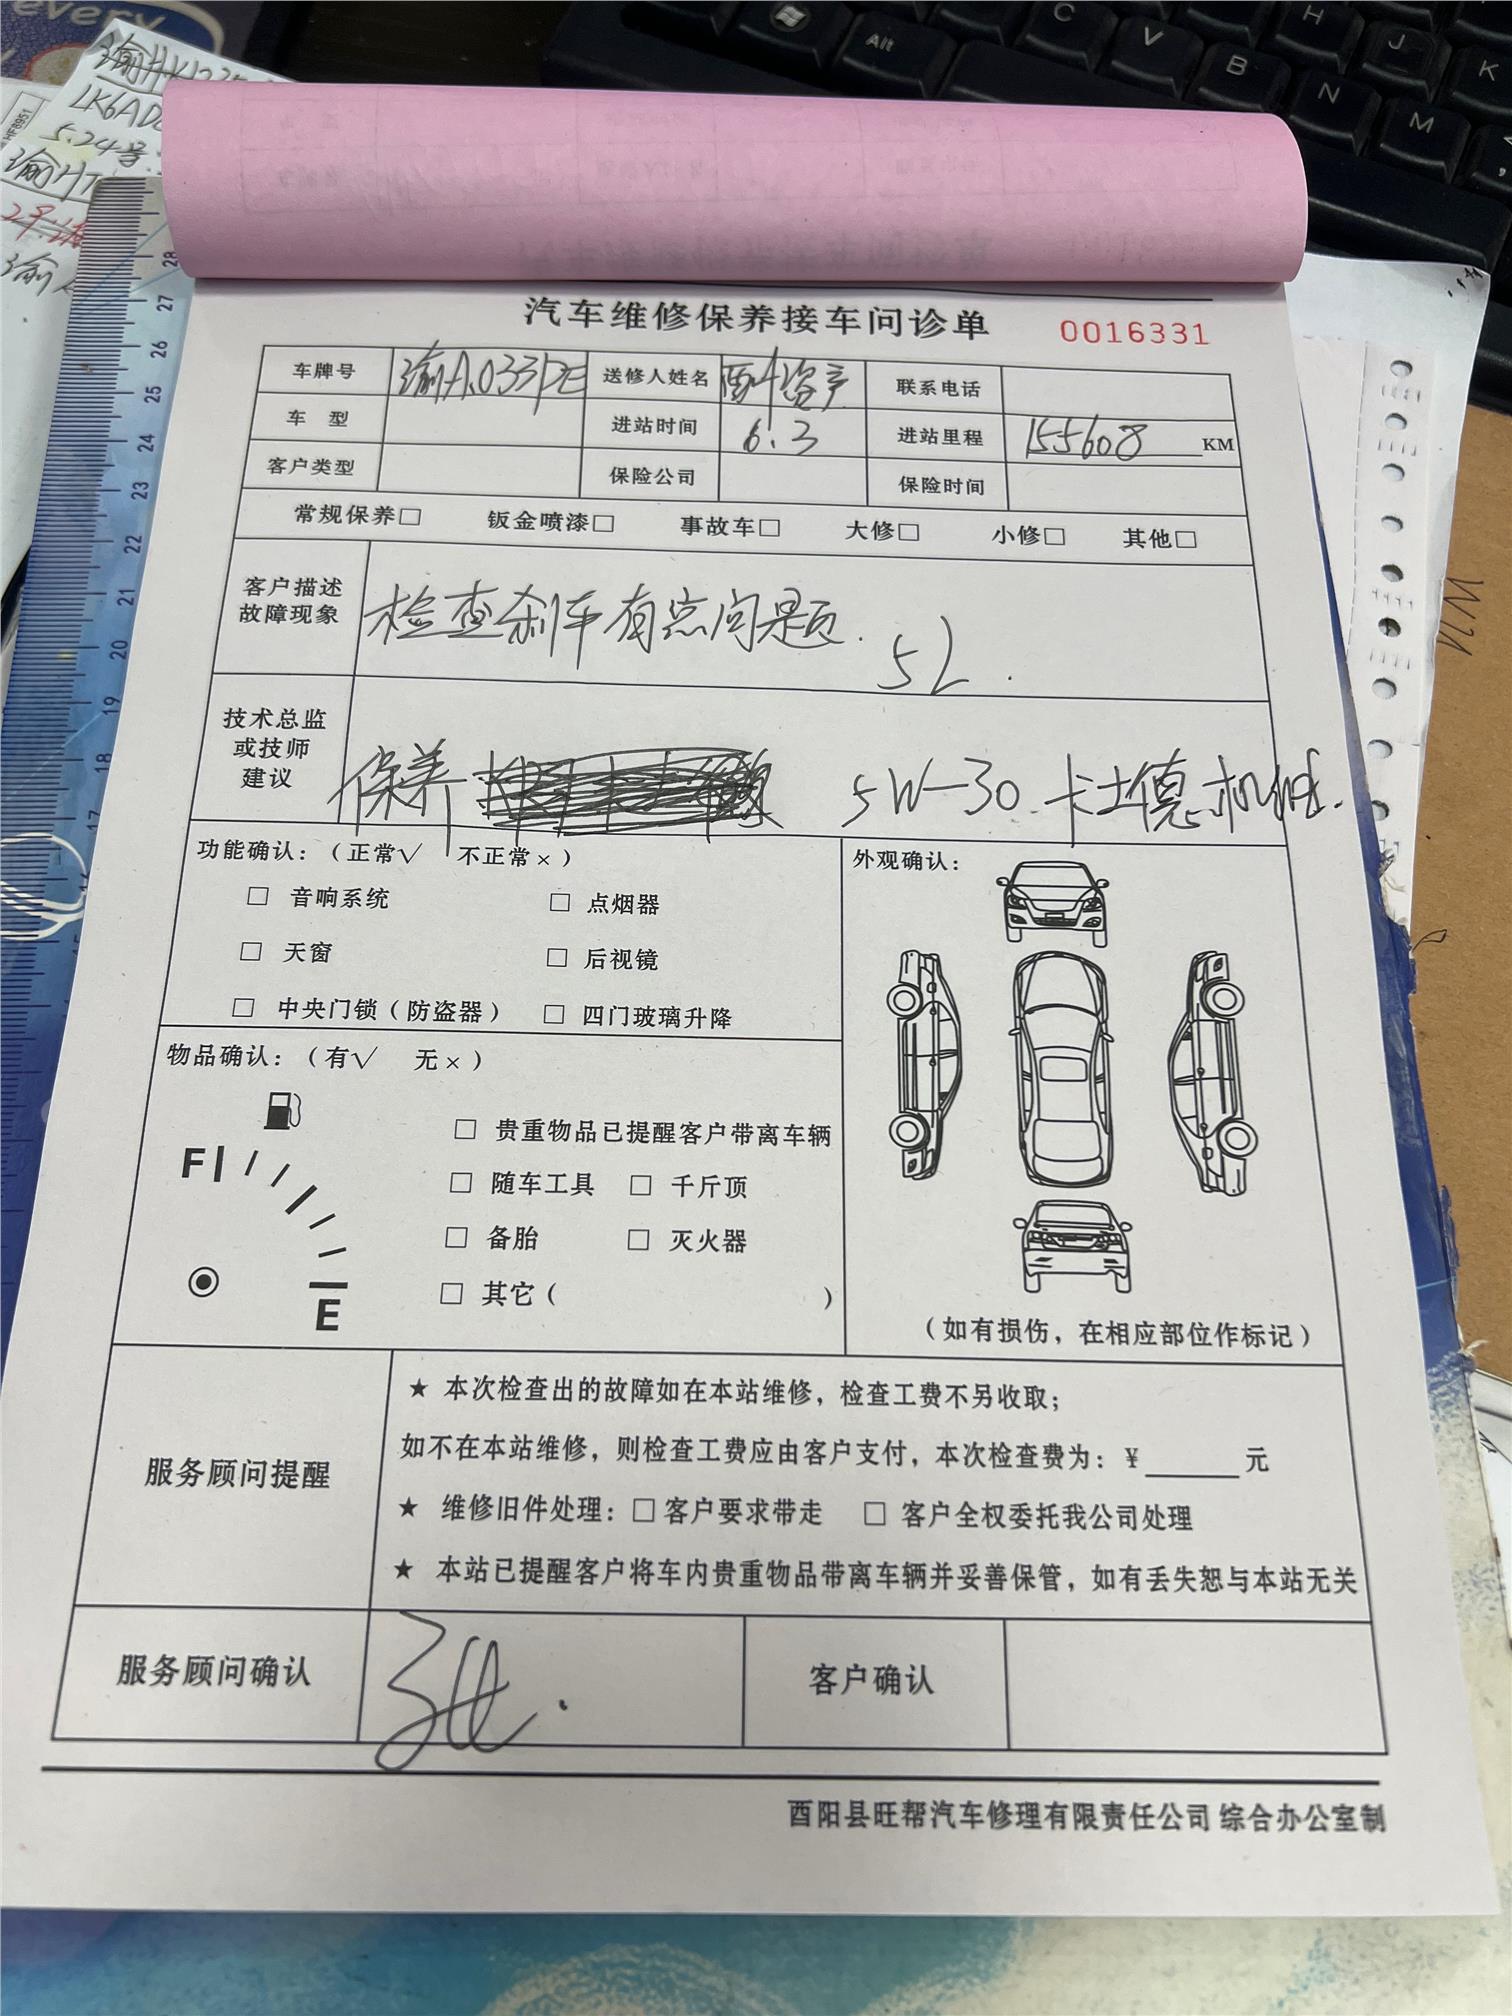 every
Alt
C
V
B
N
M
H
J
K
LK6AD
5.24号
HF8951
渝H
渝
28
27
26
25
24
23
22
21
20
19
18
17
汽车维修保养接车问诊单 0016331
车牌号 渝A.033DE 送修人姓名 酉州资产 联系电话
车 型 进站时间 6.3 进站里程 155608 KM
客户类型 保险公司 保险时间
常规保养□ 钣金喷漆□ 事故车□ 大修□ 小修□ 其他□
客户描述
故障现象
检查刹车有点问题.
5L.
技术总监
或技师
建议
保养 5W-30 卡士德机油.
功能确认：（正常√ 不正常×）
□ 音响系统 □ 点烟器
□ 天窗 □ 后视镜
□ 中央门锁（防盗器） □ 四门玻璃升降
外观确认：
（如有损伤，在相应部位作标记）
物品确认：（有√ 无×）
F
E
□ 贵重物品已提醒客户带离车辆
□ 随车工具 □ 千斤顶
□ 备胎 □ 灭火器
□ 其它（ ）
服务顾问提醒
★ 本次检查出的故障如在本站维修，检查工费不另收取；
如不在本站维修，则检查工费应由客户支付，本次检查费为：¥______元
★ 维修旧件处理：□ 客户要求带走 □ 客户全权委托我公司处理
★ 本站已提醒客户将车内贵重物品带离车辆并妥善保管，如有丢失恕与本站无关
服务顾问确认 客户确认
酉阳县旺帮汽车修理有限责任公司 综合办公室制